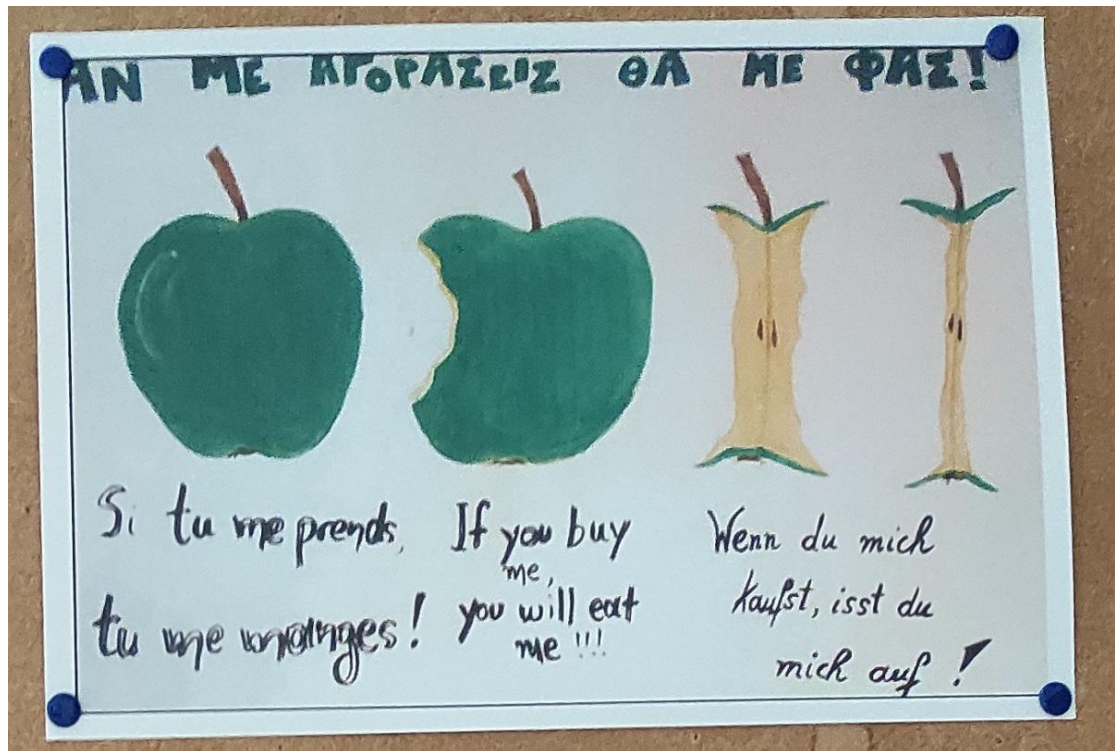 ΑΝ ΜΕ ΑΓΟΡΑΣΕΙΣ ΘΑ ΜΕ ΦΑΣ!
Si tu me prends,
tu me manges!
If you buy
me,
you will eat
me!!!
Wenn du mich
kaufst, isst du
mich auf!